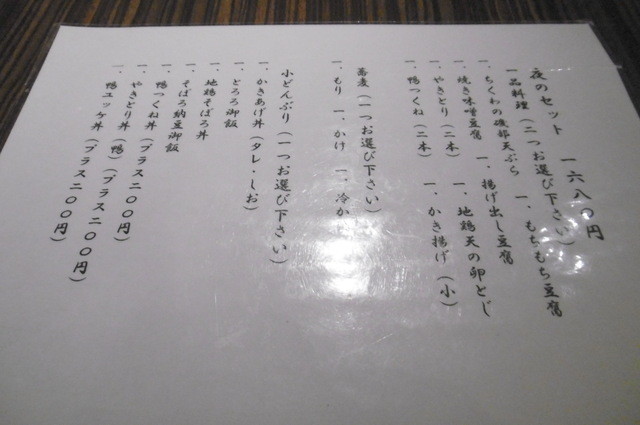 夜のセット 一六八〇円
一品料理（二つお選び下さい）
一、ちくわの磯部天ぷら 一、もちもち豆腐
一、焼き味噌豆腐 一、揚げ出し豆腐
一、やきとり（二本） 一、地鶏天の卵とじ
一、鴨つくね（二本） 一、かき揚げ（小）
蕎麦（一つお選び下さい）
一、もり 一、かけ 一、冷か
小どんぶり（一つお選び下さい）
一、かきあげ丼（タレ・しお）
一、とろろ御飯
一、地鶏そぼろ丼
一、そぼろ納豆御飯
一、鴨つくね丼（プラス二〇〇円）
一、やきとり丼（鴨）（プラス二〇〇円）
一、鴨ユッケ丼（プラス二〇〇円）